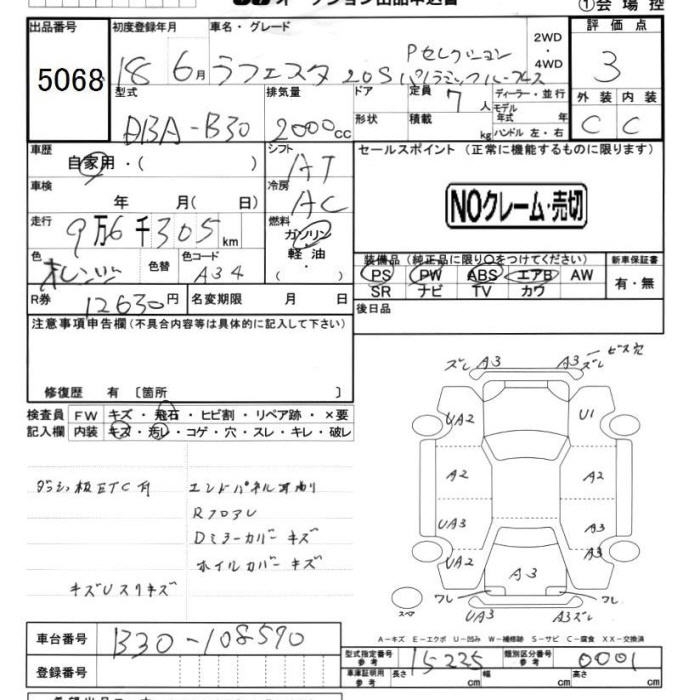 ①会場控
出品番号 5068
初度登録年月 18 6月
車名・グレード ラフェスタ 20S Pセレクション
2WD・4WD
評価点 3
外装 C 内装 C
型式 DBA-B30
排気量 2000cc
ドア 形状
定員 7人
積載 kg
ディーラー・並行
モデル年式 年
ハンドル 左・右
車歴 自家用・( )
シフト AT
セールスポイント (正常に機能するものに限ります)
NOクレーム・売切
車検 年 月( 日)
冷房 AC
走行 9万6千305km
燃料 ガソリン・軽油・( )
色 オレンジ 色替 色コード A34
装備品 (純正品に限り○をつけてください)
PS PW ABS エアB AW
SR ナビ TV カワ
新車保証書 有・無
R券 12630円 名変期限 月 日
後日品
注意事項申告欄(不具合内容等は具体的に記入して下さい)
修復歴 有 〔箇所 〕
検査員記入欄
FW キズ・飛石・ヒビ割・リペア跡・×要
内装 キズ・汚レ・コゲ・穴・スレ・キレ・破レ
ETC付
エンドパネル
Dミラーカバーキズ
ホイルカバーキズ
ズレ A3 A3 ズレ ビス穴
UA2 U1
A2 A2
UA3 A3
UA2 A3 A3
ワレ ワレ
UA3 A3ズレ
スペア
A-キズ E-エクボ U-凹み W-補修跡 S-サビ C-腐食 XX-交換済
車台番号 B30-108590
登録番号
型式指定番号 参考 15225 類別区分番号 参考 0001
車庫証明用 参考 長さ cm 幅 cm 高さ cm